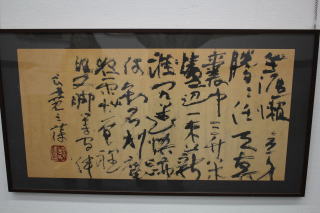 生涯懶立身
騰々任天真
嚢中三升米
爐辺一束薪
誰問迷悟跡
何知名利塵
夜雨草庵裡
双脚等間伸
良寛之詩